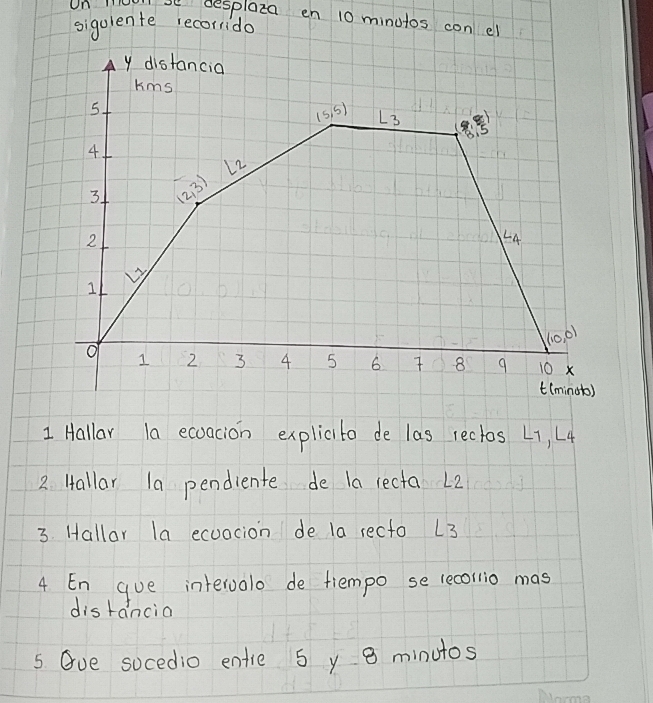 Un móvil se desplaza en 10 minutos con el
siguiente recorrido
y distancia
Kms
5
4
3
2
1
0
(2,3)
(5,5)
(8,5)
(10,0)
L1
L2
L3
L4
1 2 3 4 5 6 7 8 9 10 x
t(minuto)
1 Hallar la ecuación explicito de las rectas L1, L4
2 Hallar la pendiente de la recta L2
3 Hallar la ecuación de la recta L3
4 En que intervalo de tiempo se recorrio mas
distáncia
5 Que sucedio entre 5 y 8 minutos
Norma